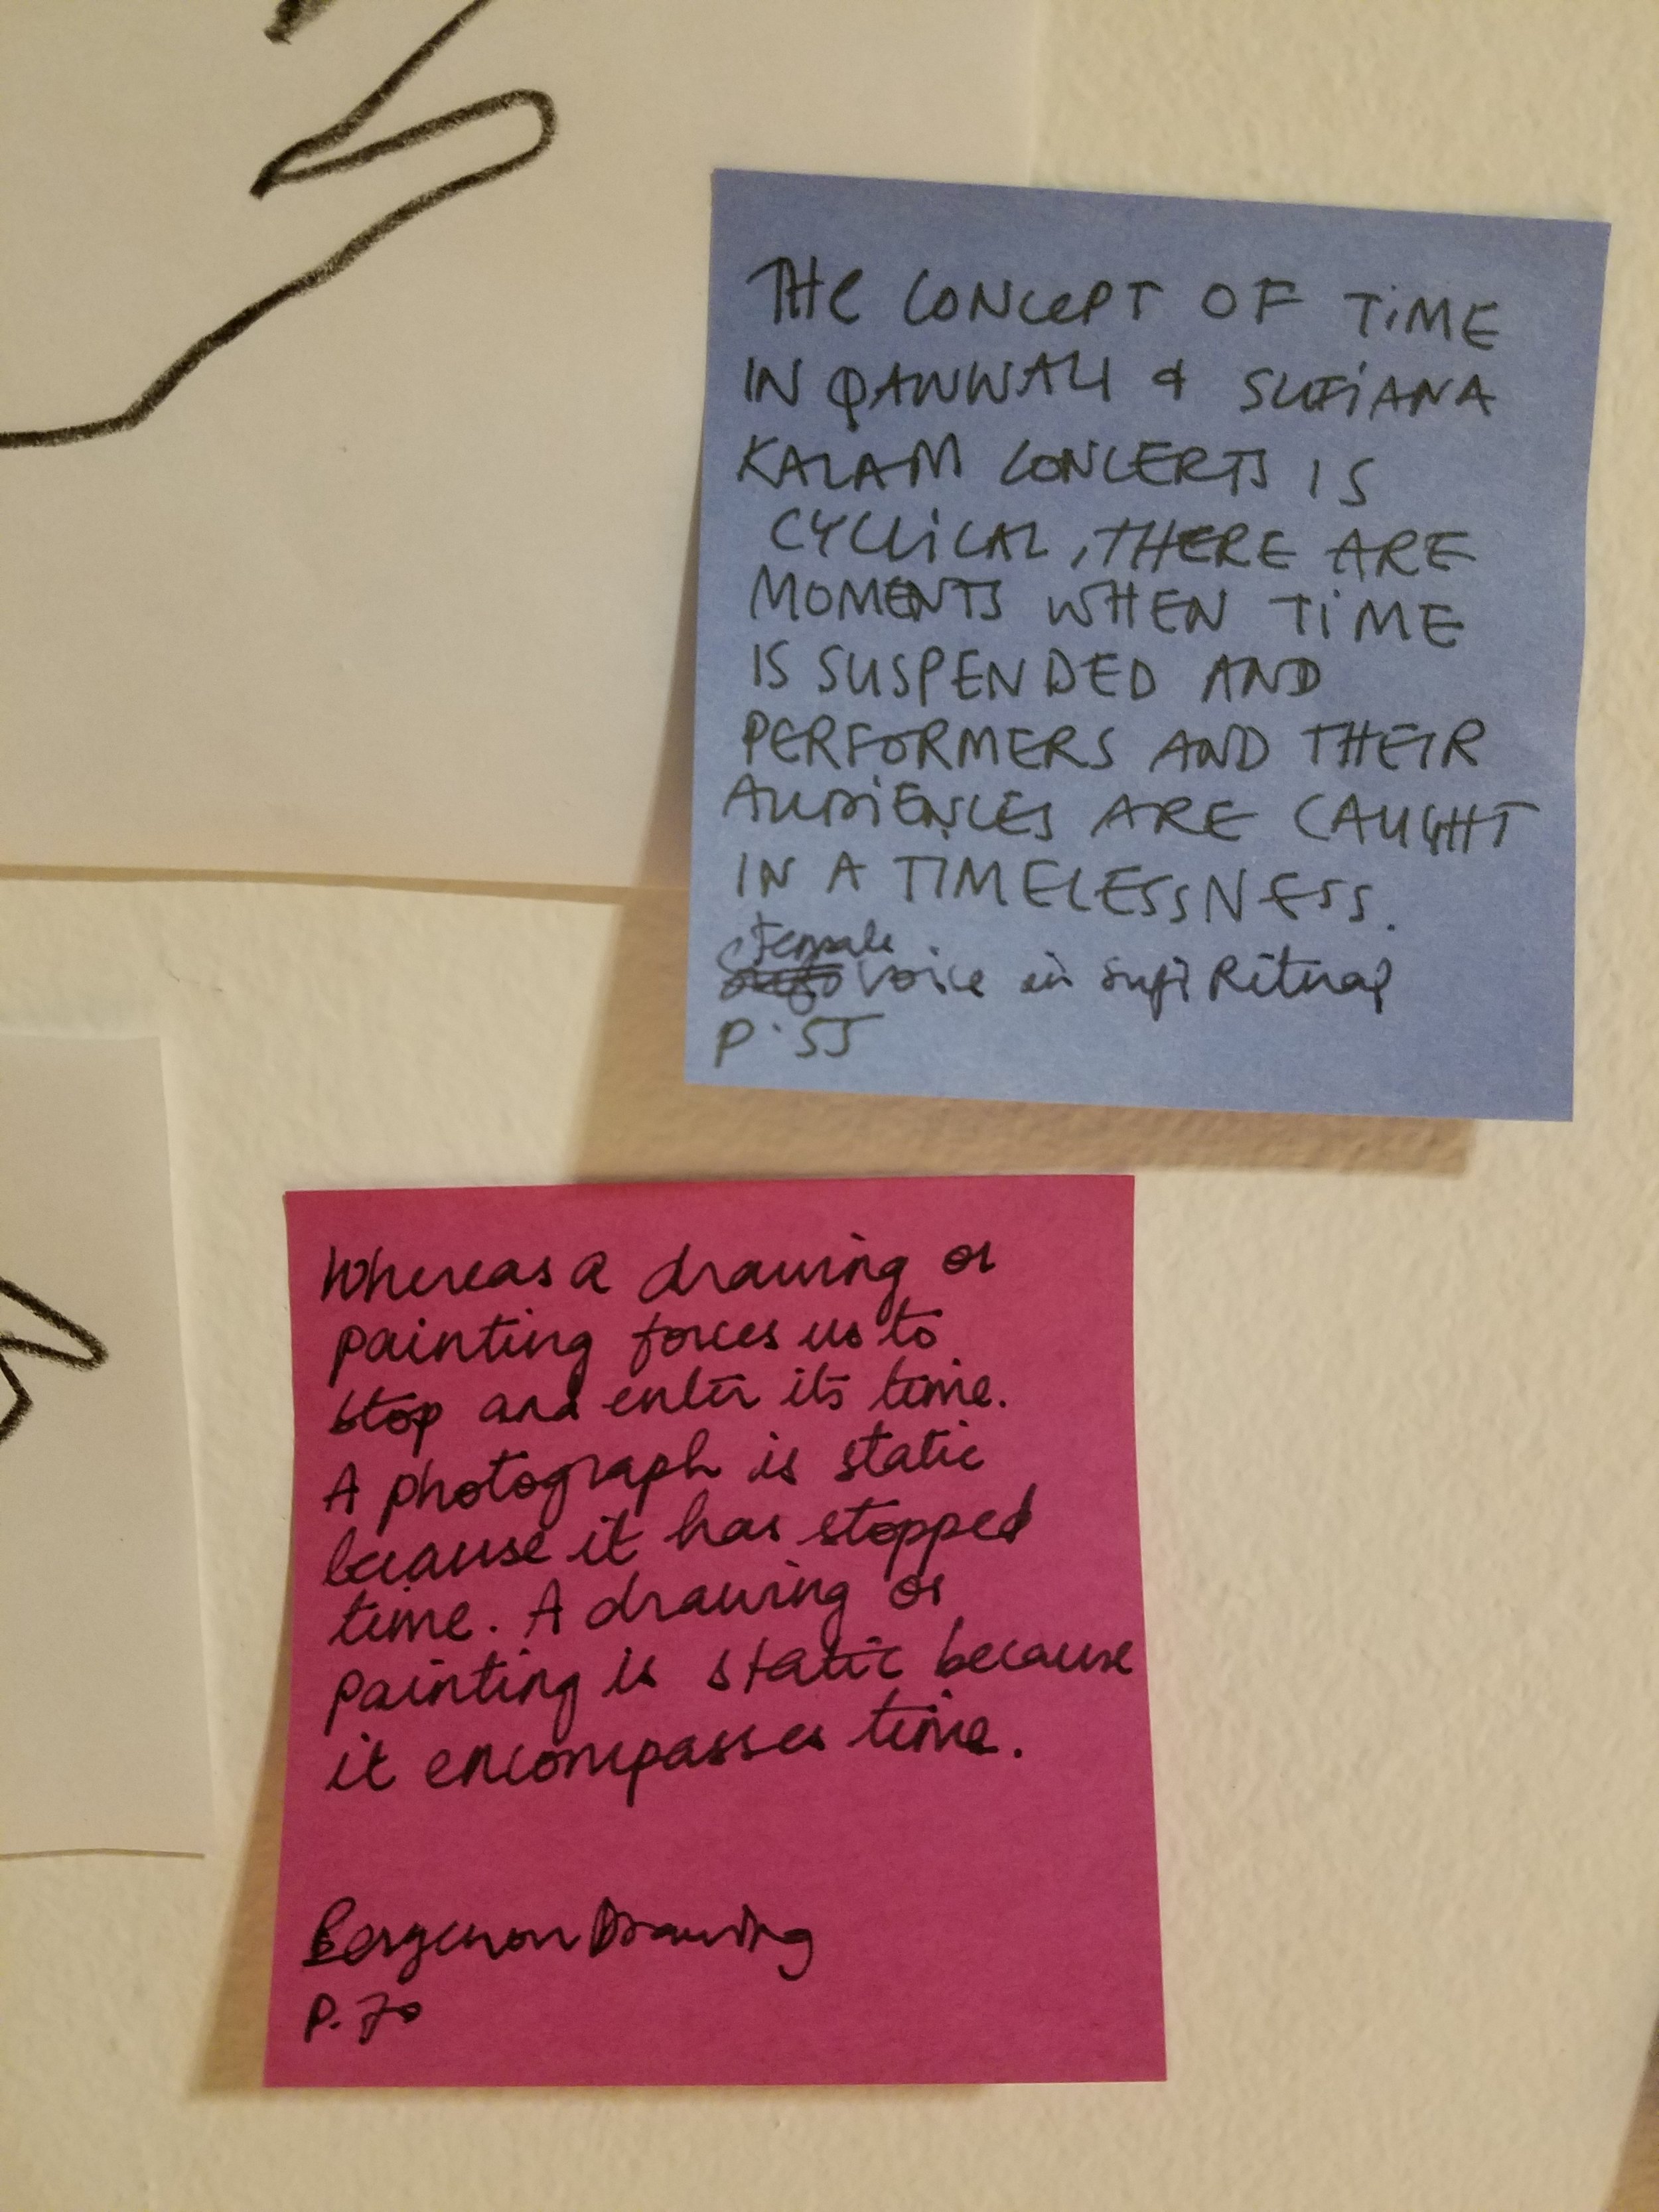 THE CONCEPT OF TIME
IN QAWWALI & SUFIANA
KALAM CONCERTS IS
CYCLICAL, THERE ARE
MOMENTS WHEN TIME
IS SUSPENDED AND
PERFORMERS AND THEIR
AUDIENCES ARE CAUGHT
IN A TIMELESSNESS.
Female
voice in Sufi Ritual
P. 55
Whereas a drawing or
painting forces us to
stop and enter its time.
A photograph is static
because it has stopped
time. A drawing or
painting is static because
it encompasses time.
Berger on Drawing
P. 70